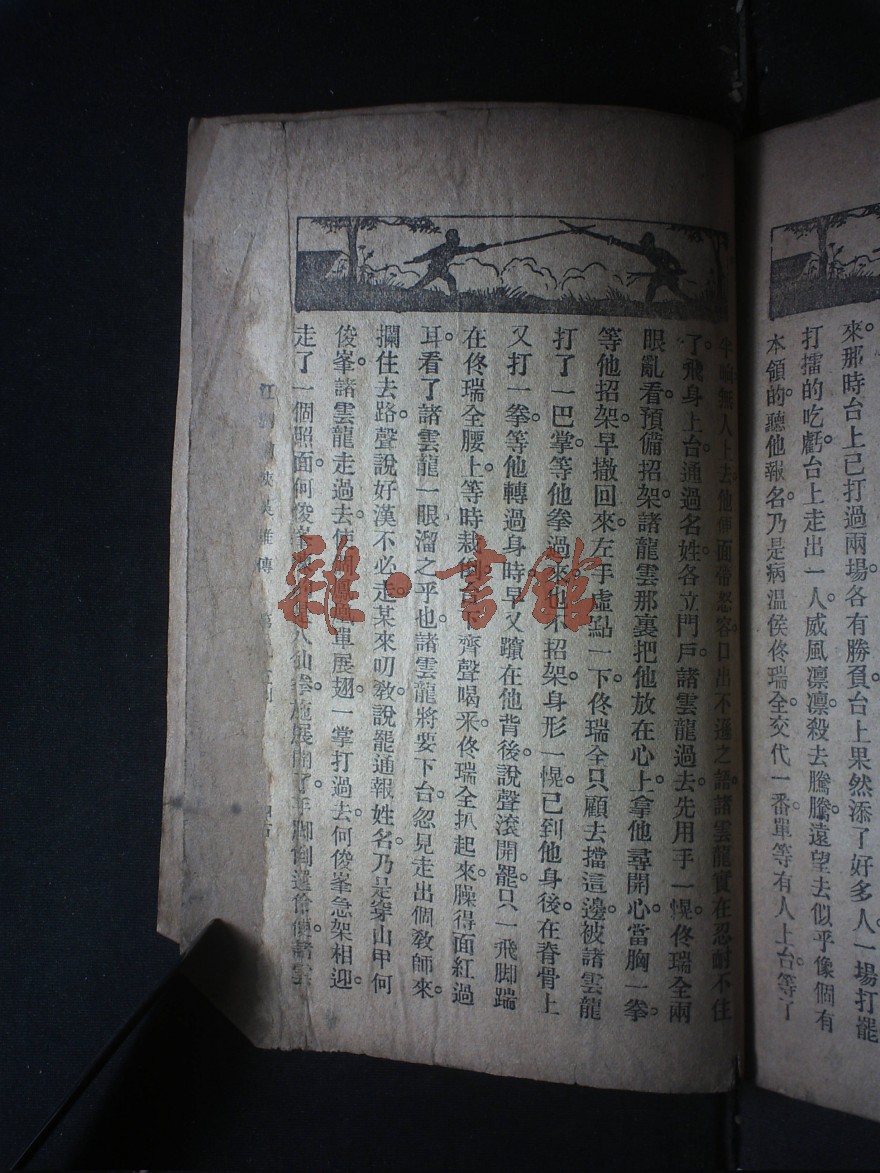 來。那時台上已打過兩場。各有勝負。台上果然添了好多人。一場打罷
打擂的吃虧。台上走出一人。威風凜凜。殺去騰騰。遠望去似乎像個有
本領的。聽他報名。乃是病溫侯佟瑞全。交代一番。單等有人上台。等了
無人上去。他便面帶怒容。口出不遜之語。諸雲龍實在忍耐不住
了。飛身上台。通過名姓。各立門戶。諸雲龍過去。先用手一幌。佟瑞全兩
眼亂看。預備招架。諸龍雲那裏把他放在心上。拿他尋開心。當胸一拳。
等他招架。早撤回來。左手虛點一下。佟瑞全只顧去擋這邊。被諸雲龍
打了一巴掌。等他拳過來。也不招架。身形一幌。已到他身後。在脊骨上
又打一拳。等他轉過身時。早又躥在他背後。說聲滾開罷。只一飛脚踹
在佟瑞全腰上。等時栽倒。台下齊聲喝釆。佟瑞全扒起來。臊得面紅過
耳。看了諸雲龍一眼。溜之乎也。諸雲龍將要下台。忽見走出個教師來。
攔住去路。聲說好漢不必走。某來叨教。說罷通報姓名。乃是穿山甲何
俊峯。諸雲龍走過去。使單展翅。一掌打過去。何俊峯急架相迎。
走了一個照面。何俊八仙拳。施展開了。手脚諸雲
江俠傳 第
雜·書館